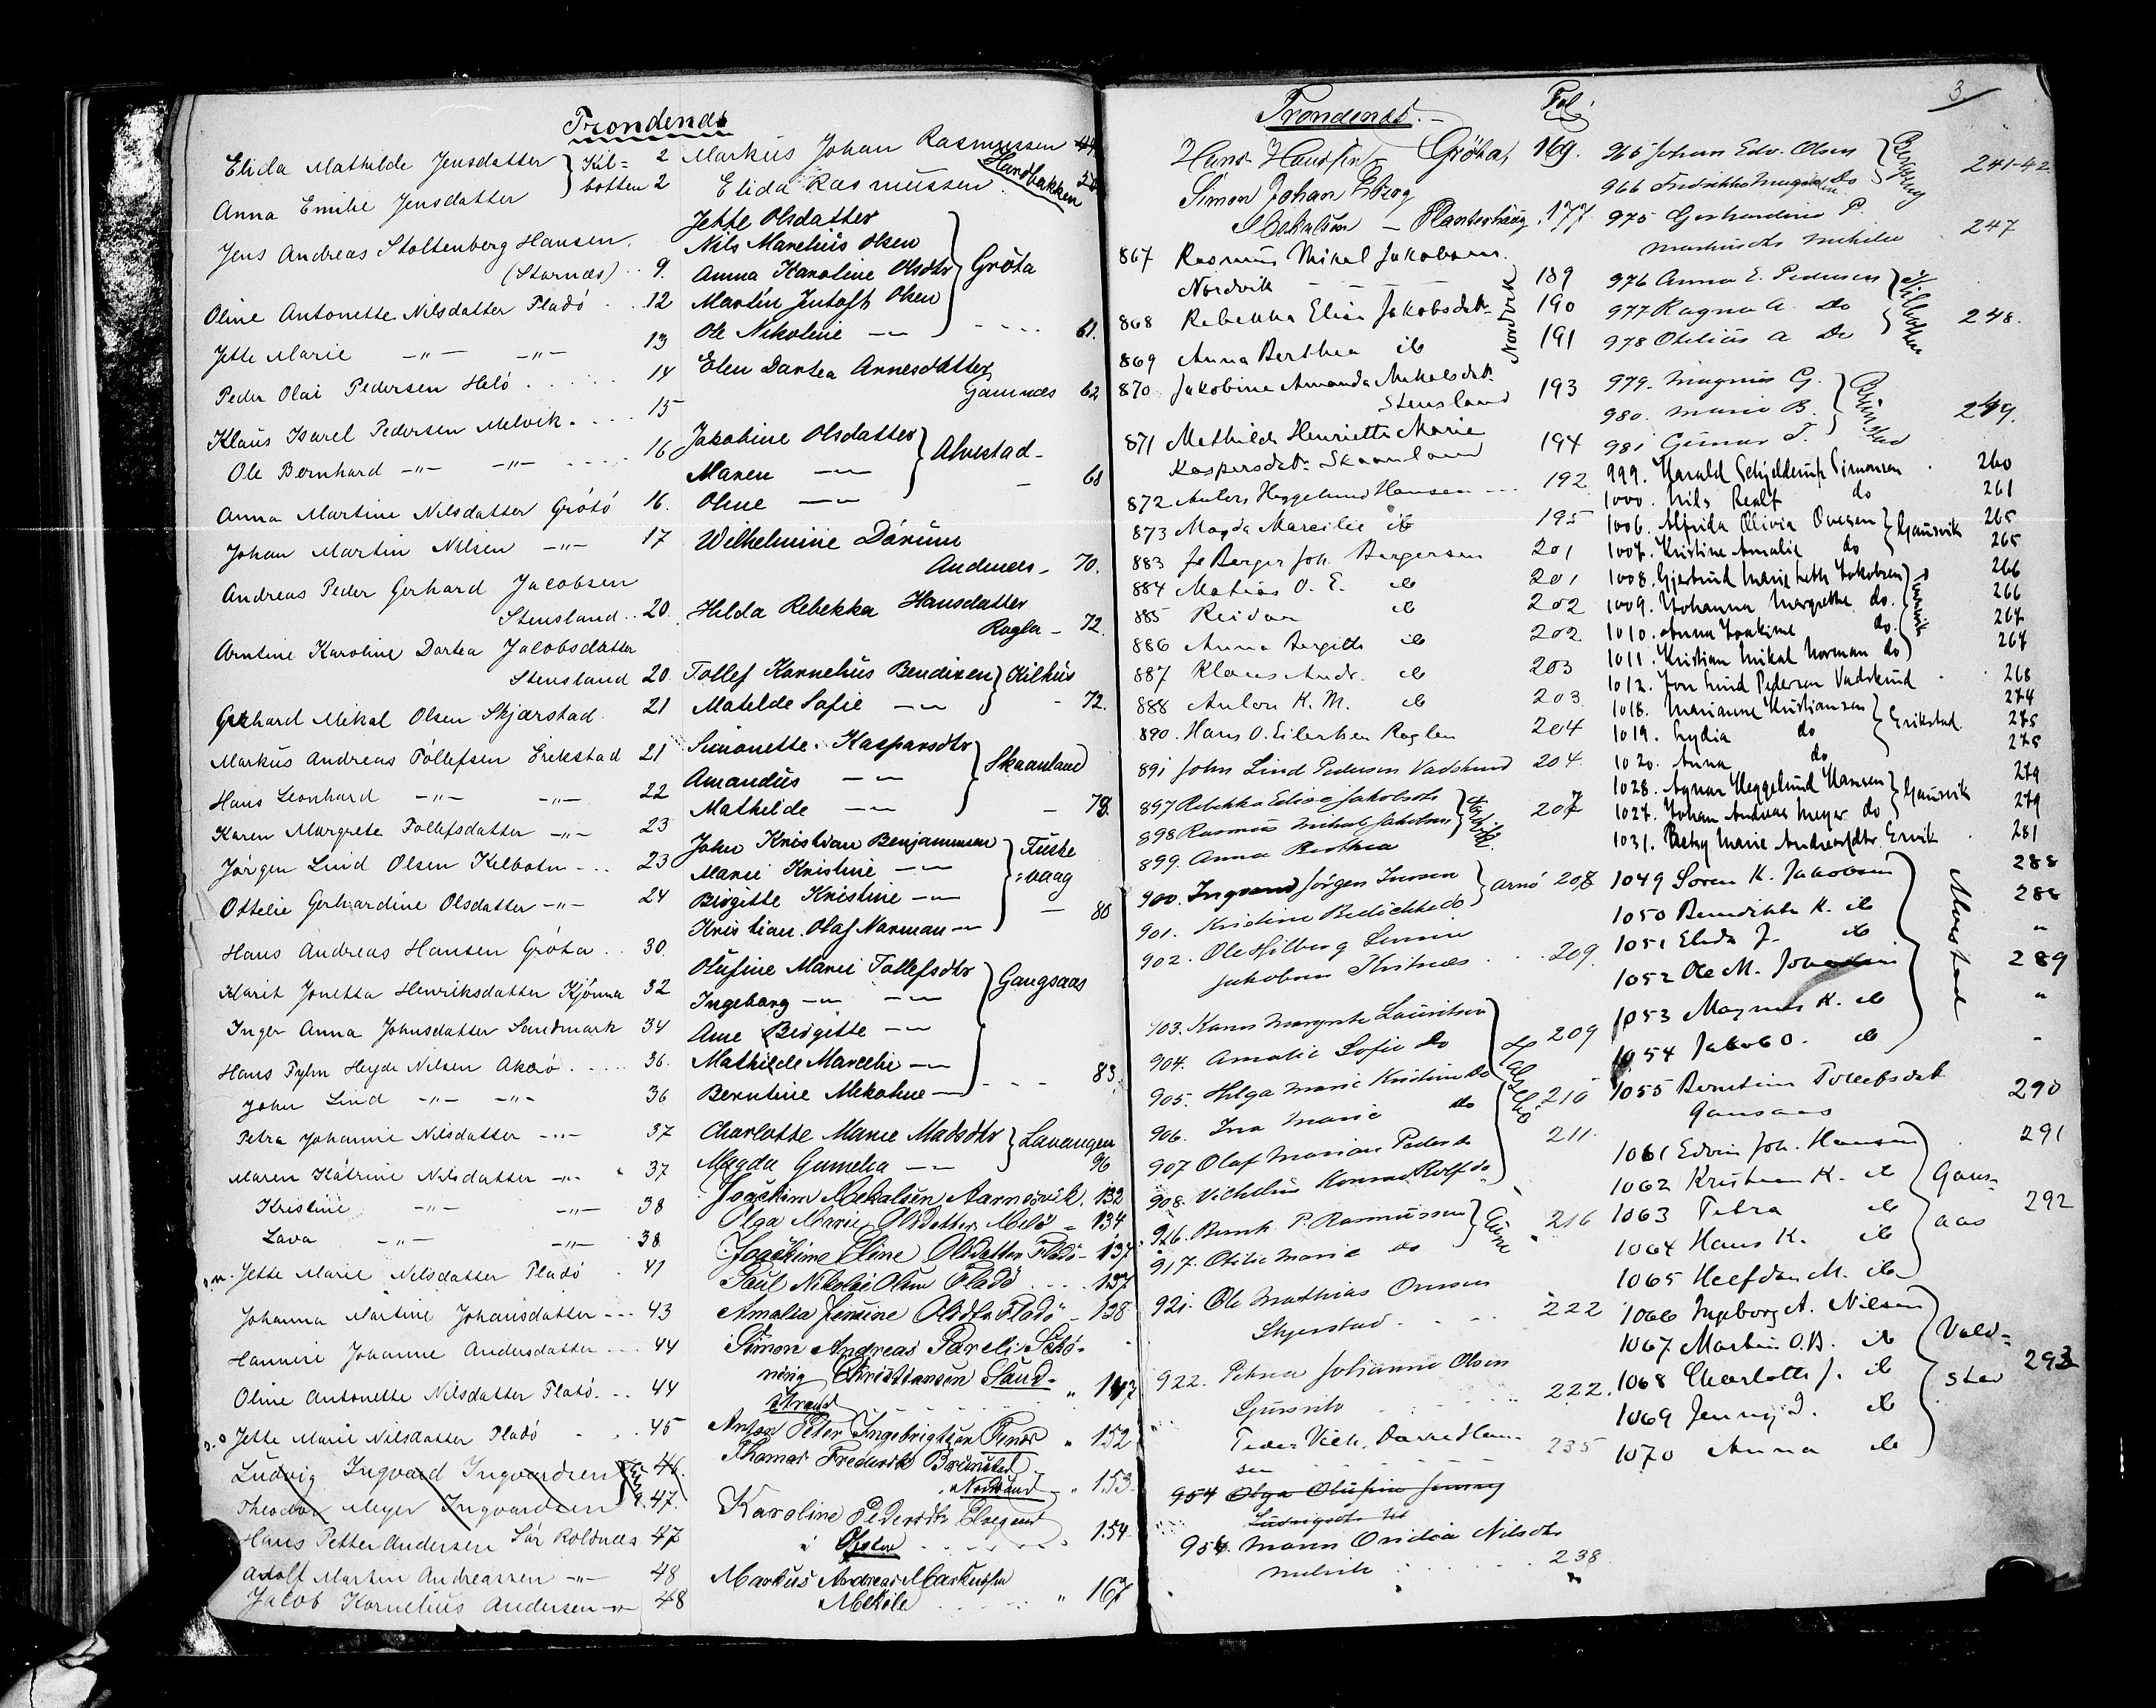 Trondenes
Elida Mathilde Jensdatter } Kil= 2
Anna Emilie Jensdatter } botten 2
Jens Andreas Stoltenberg Hansen
(Stornæs) . . 9.
Oline Antonette Nilsdatter Fladö . . 12
Jette Marie —"— —"— 13
Peder Olai Pedersen Helö . . . . . 14
Klaus Isarel Pedersen Melvik . . . 15
Ole Bernhard —"— —"— . . . . 16
Anna Martine Nilsdatter Grötö 16.
Johan Martin Nilsen —"— 17
Andreas Peder Gerhard Jacobsen
Stensland . . 20.
Arntine Karoline Dortea Jacobsdatter
Stensland 20.
Gerhard Mikal Olsen Skjærstad 21
Markus Andreas Tollefsen Erikstad 21
Hans Leonhard —"— —"— 22
Karen Margrete Tollefsdatter —"— 23
Jørgen Lind Olsen Kilbotn - . . 23
Ottelie Gerhardine Olsdatter —"— 24
Hans Andreas Hansen Gröta . . 30.
Marit Jonetta Henriksdatter Kjönna 32
Inger Anna Johnsdatter Sandmark 34
Hans Fyhn Heyde Nilsen Akerö . . . . . 36.
John Lind —"— —"— 36
Petra Johanne Nilsdatter —"— 37
Maren Katrine Nilsdatter —"— 37
Kristine —"— —"— 38
Lava —"— —"— 38
Jette Marie Nilsdatter Fladö . 41
Johanna Martine Johansdatter - - - 43
Hanneri Johanne Andersdatter - - - 44
Oline Antonette Nilsdatter Fladö. - . 44
Jette Marie Nilsdatter Fladö . . 45
Ludvig Ingvard Ingvardsen 46.
Theodor Meyer Ingvardsen 47.
Hans Petter Andersen Sör Roldnes 47
Adolf Martin Andreassen —"— 48
Jacob Kornelius Andersen —"— 48
Markus Johan Rasmussen
Elida Rasmussen Sandbakken
Jette Olsdatter
Nils Marelius Olsen
Anna Karoline Olsdtr } Gröta
Martin Jentoft Olsen
Ole Nikoline —"— - - - - 61.
Elen Dortea Arnesdatter
Gamnæs 62
Jakobine Olsdatter } Alvestad -
Maren —"— — 68
Oline —"—
Wilhelmine Dånum
Andenes - 70.
Hilda Rebekka Hansdatter
Rogla - 72.
Tollef Kornelius Bendixen } Kilhus
Matelde Sofie —"— - 72.
Simonette Kasparsdtr } Skaanland
Amandus —"—
Mathilde —"— — 78.
John Kristian Benjaminsen } Fuske
Marie Kristine —"— =vaag
Birgitte Kristine —"— — 80
Kristian Olaf Norman —"—
Olufine Marie Tollefsdtr } Gangsaas
Ingeborg —"— —"—
Ane Birgitte —"—
Mathilde Marcelie —"— 83.
Berntine Mekoline —"—
Charlotte Marie Madsdtr } Lavangen
Magda Gumelia —"— 96
Joachim Mekalsen Aarnesvik. 132
Olga Marie Olsdatter Melö - 134
Joachime Eline Olsdatter Fladö - 137
Paul Nikolai Olsen Fladö . . . 137
Amalia Jensine Olsdtr Fladö - 138
Simon Andreas Pareli Schö-
ning Christiansen Sand-
strand " 147
Anton Peter Ingebrigtsen Finnes " 152
Thomas Frederik Brunstad
Nordsand " 153.
Karoline Pedersdtr Elvegaard
i Ofoten . . . 154
Markus Andreas Markussen
Mekole . . . " 167
Trondenes.- Fol. 3
Hans Hansen Gröta, 169.
Simon Johan Eberg
Mekalsen — Planterhaug . 177
867 Rasmus Mikal Jakobsen
Nordvik - - - - 189
868 Rebekka Elise Jakobsdtr Nordvik 190
869 Anna Berthea do 191
870. Jakobine Amanda Mekalsdtr
Stensland 193
871 Mathilde Henriette Marie
Kaspersdtr Skaanland 194
872 Anders Heggelund Hansen - - - 192
873 Magda Marcilie do 195
883 Jo Berger Joh. Bergersen 201
884 Matias O. E. do 201
885 Reidar do 202
886 Anna Bergitte do 202
887 Klaus Andr. do 203
888 Anton K. M. do 203.
890. Hans O. Eilertsen Roglen 204
891 John Lind Pedersen Vadskind 204.
897 Rebekka Elise Jakobsdtr
898 Rasmus Mikal Jakobsen 207
899. Anna Berthea
900. Ingvard Jörgen Jensen } Arnö 208
901. Kristine Bedichte do
902. Ole Hilberg Simon
Jakobsen Thitnæs . . . 209.
903. Karen Margrete Lauritsen 209
904. Amalie Sofie do
905. Helga Marie Kristine do 210
906. Ina Marie do 211.
907 Olaf Marian Peder do
908. Vilhelm Konrad Rolf do
916. Bernh. P. Rasmussen } 216
917. Otilie Marie do
921. Ole Mathias Omsen
Skjerstad . - - - 222
922. Petra Johanne Olsen
Gjersvik . . . 222.
Peder Vilh. Daniel Han-
sen 235
954 Olga Olufine Jenny
Ludvigsdtr
954. Maren Oridia Nilsdtr
Melvik . . . . . 238.
965 Johan Edv. Olsen } Bergsvaag 241-42.
966 Fredrikke Magdalene do
975 Gerhardine P.
Markusdtr Mekeler 247
976 Anna E. Pedersen } Kilbotten
977 Ragna A. do 248.
978 Otelius A do
979. Magnus G. } Brunstad
980. Marie B. 249.
981 Gunnar T.
999. Harald Schjelderup Simonsen . 260
1000. Nils Realf do 261
1006. Alfrida Olivia Ovesen } Gausvik 265
1007. Kristine Amalie do 265
1008. Gjertrud Marie Leth Jakobsen 266
1009. Johanna Margrethe do. 266
1010. Anna Joakime do. 267
1011. Kristian Mikal Norman do 267
1012. Jon Lind Pedersen Vadskind . . 268
1018. Marianne Kristiansen } Erikstad 274
1019. Lydia do 275
1020. Anna do 275
1028. Agnar Heggelund Hansen } Gausvik 279
1027. Johan Andreas Meyer do 279
1031. Betsy Marie Andreasdtr. Ervik . 281
1049 Soren K. Jakobsen 288
1050 Benedikte K. do Alvestad 288
1051 Elida J. do "
1052 Ole M. Jakobsen 289
1053 Magnus K. do "
1054 Jakob O. do "
1055 Berntine Tollefsdat
Gansaas 290
1061 Edvin Joh. Hansen . 291
1062 Kristian K. do } Gans-
1063 Petra do aas 292
1064 Hans K. do
1065 Helfdan M. do
1066 Ingeborg A. Nilsen
1067 Martin O.B. do } Vold-
1068 Charlotte J. do stad 293
1069 Jenny I. do
1070 Anna do